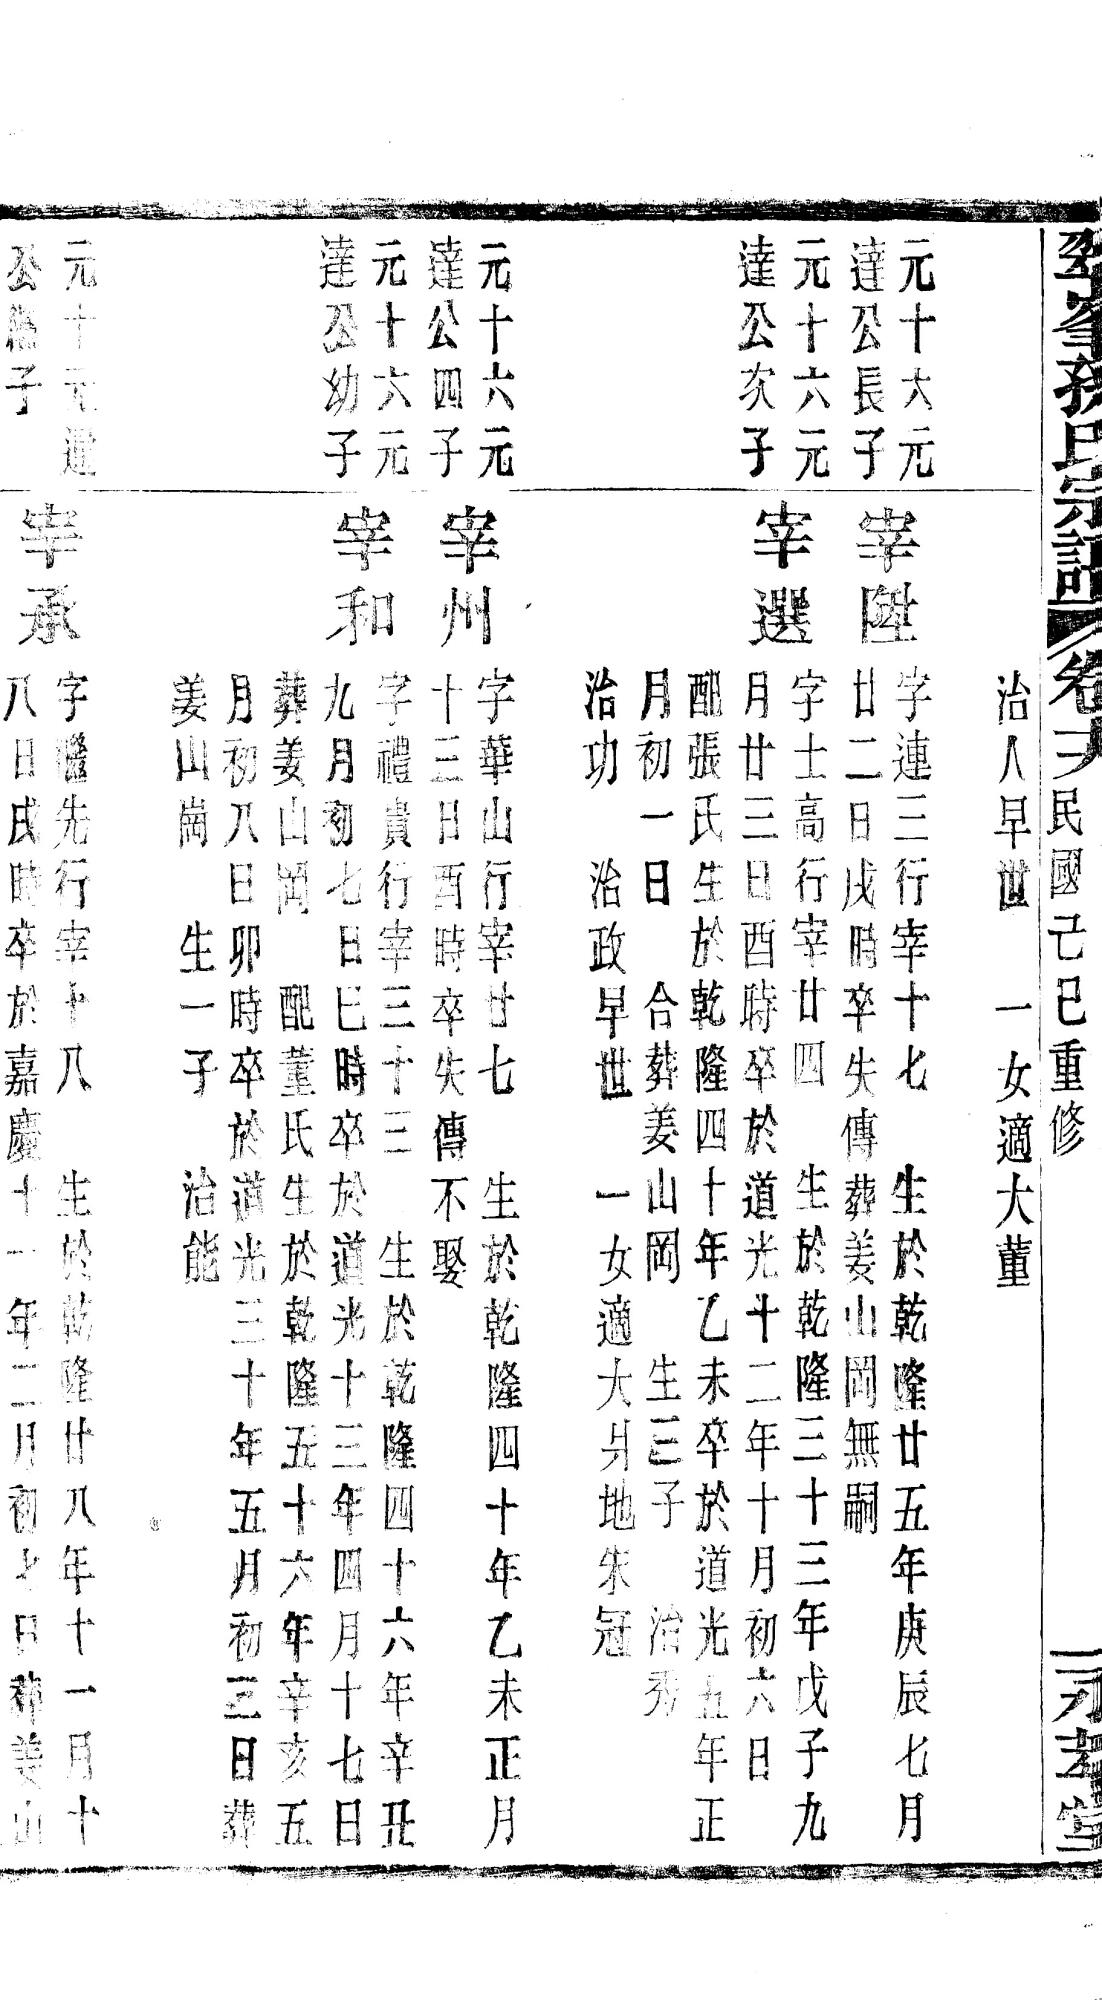 孫氏宗譜 卷十六 民國己巳重修
永孝堂
治人早世 一女適大董
元十六元
達公長子
宰陞
字連三行宰十七 生於乾隆廿五年庚辰七月
廿二日戌時卒失傳葬姜山岡無嗣
元十六元
達公次子
宰選
字士高行宰廿四 生於乾隆三十三年戊子九
月廿三日酉時卒於道光十二年十月初六日
配張氏生於乾隆四十年乙未卒於道光五年正
月初一日 合葬姜山岡 生三子 治秀
治功 治政早世 一女適大爿地宋冠
元十六元
達公四子
宰州
字華山行宰廿七 生於乾隆四十年乙未正月
十三日酉時卒失傳不娶
元十六元
達公幼子
宰和
字禮貴行宰三十三 生於乾隆四十六年辛丑
九月初七日巳時卒於道光十三年四月十七日
葬姜山岡 配董氏生於乾隆五十六年辛亥五
月初八日卯時卒於道光三十年五月初三日葬
姜山崗 生一子 治能
元十元運
公繼子
宰承
字繼先行宰十八 生於乾隆廿八年十一月十
八日戌時卒於嘉慶十一年二月初七日葬姜山